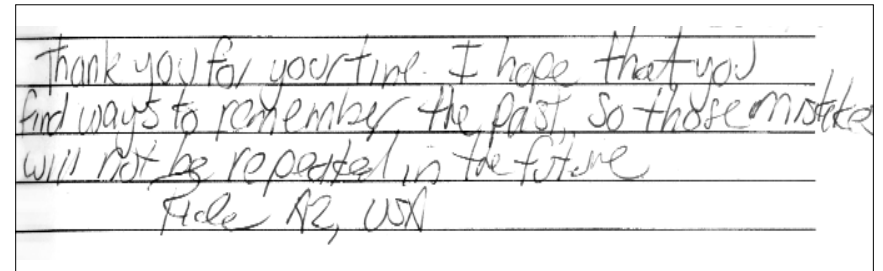 Thank you for your time. I hope that you
find ways to remember the past, so those mistakes
will not be repeated in the future
AZ, USA